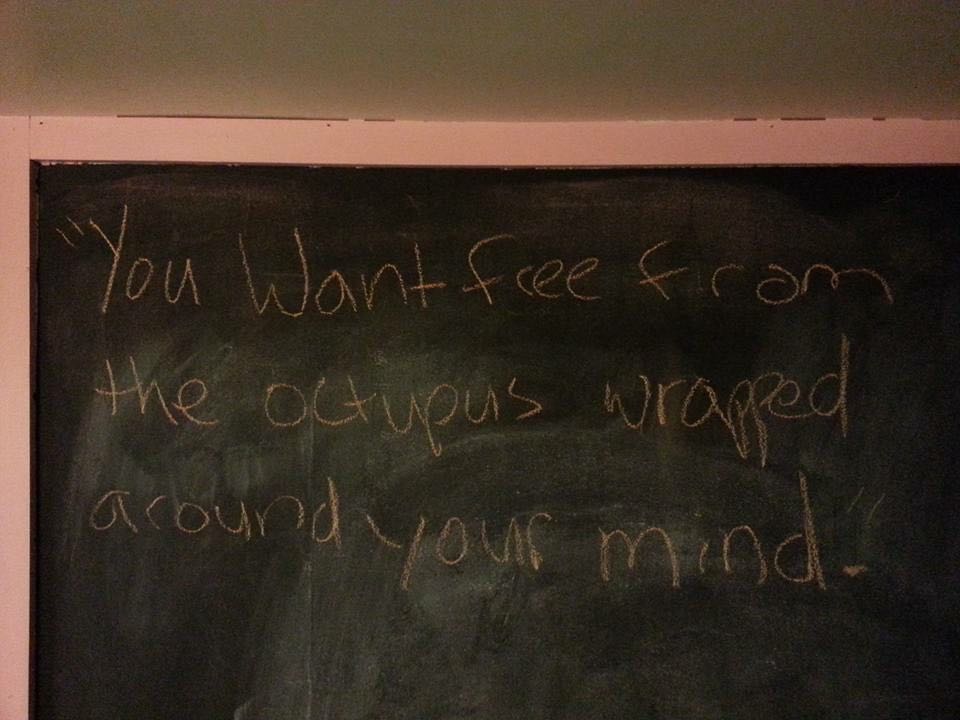 "You Want free from
the octupus wrapped
around your mind."